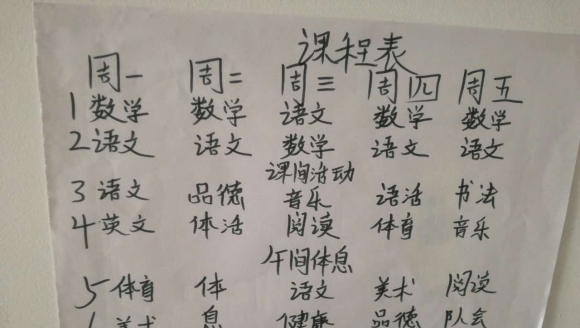 课程表
周一 周二 周三 周四 周五
1 数学 数学 语文 数学 数学
2 语文 语文 数学 语文 语文
课间活动
3 语文 品德 音乐 语活 书法
4 英文 体活 阅读 体育 音乐
午间体息
5 体育 体 语文 美术 阅读
美术 息 健康 品德 队会